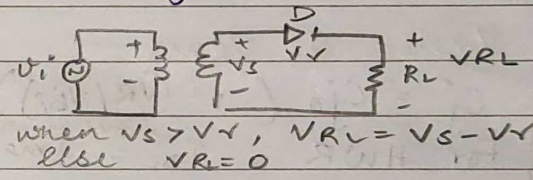 D
+ + +
vi VS Vγ RL VRL
- - -
when VS > Vγ, VRL = VS - Vγ
else VRL = 0